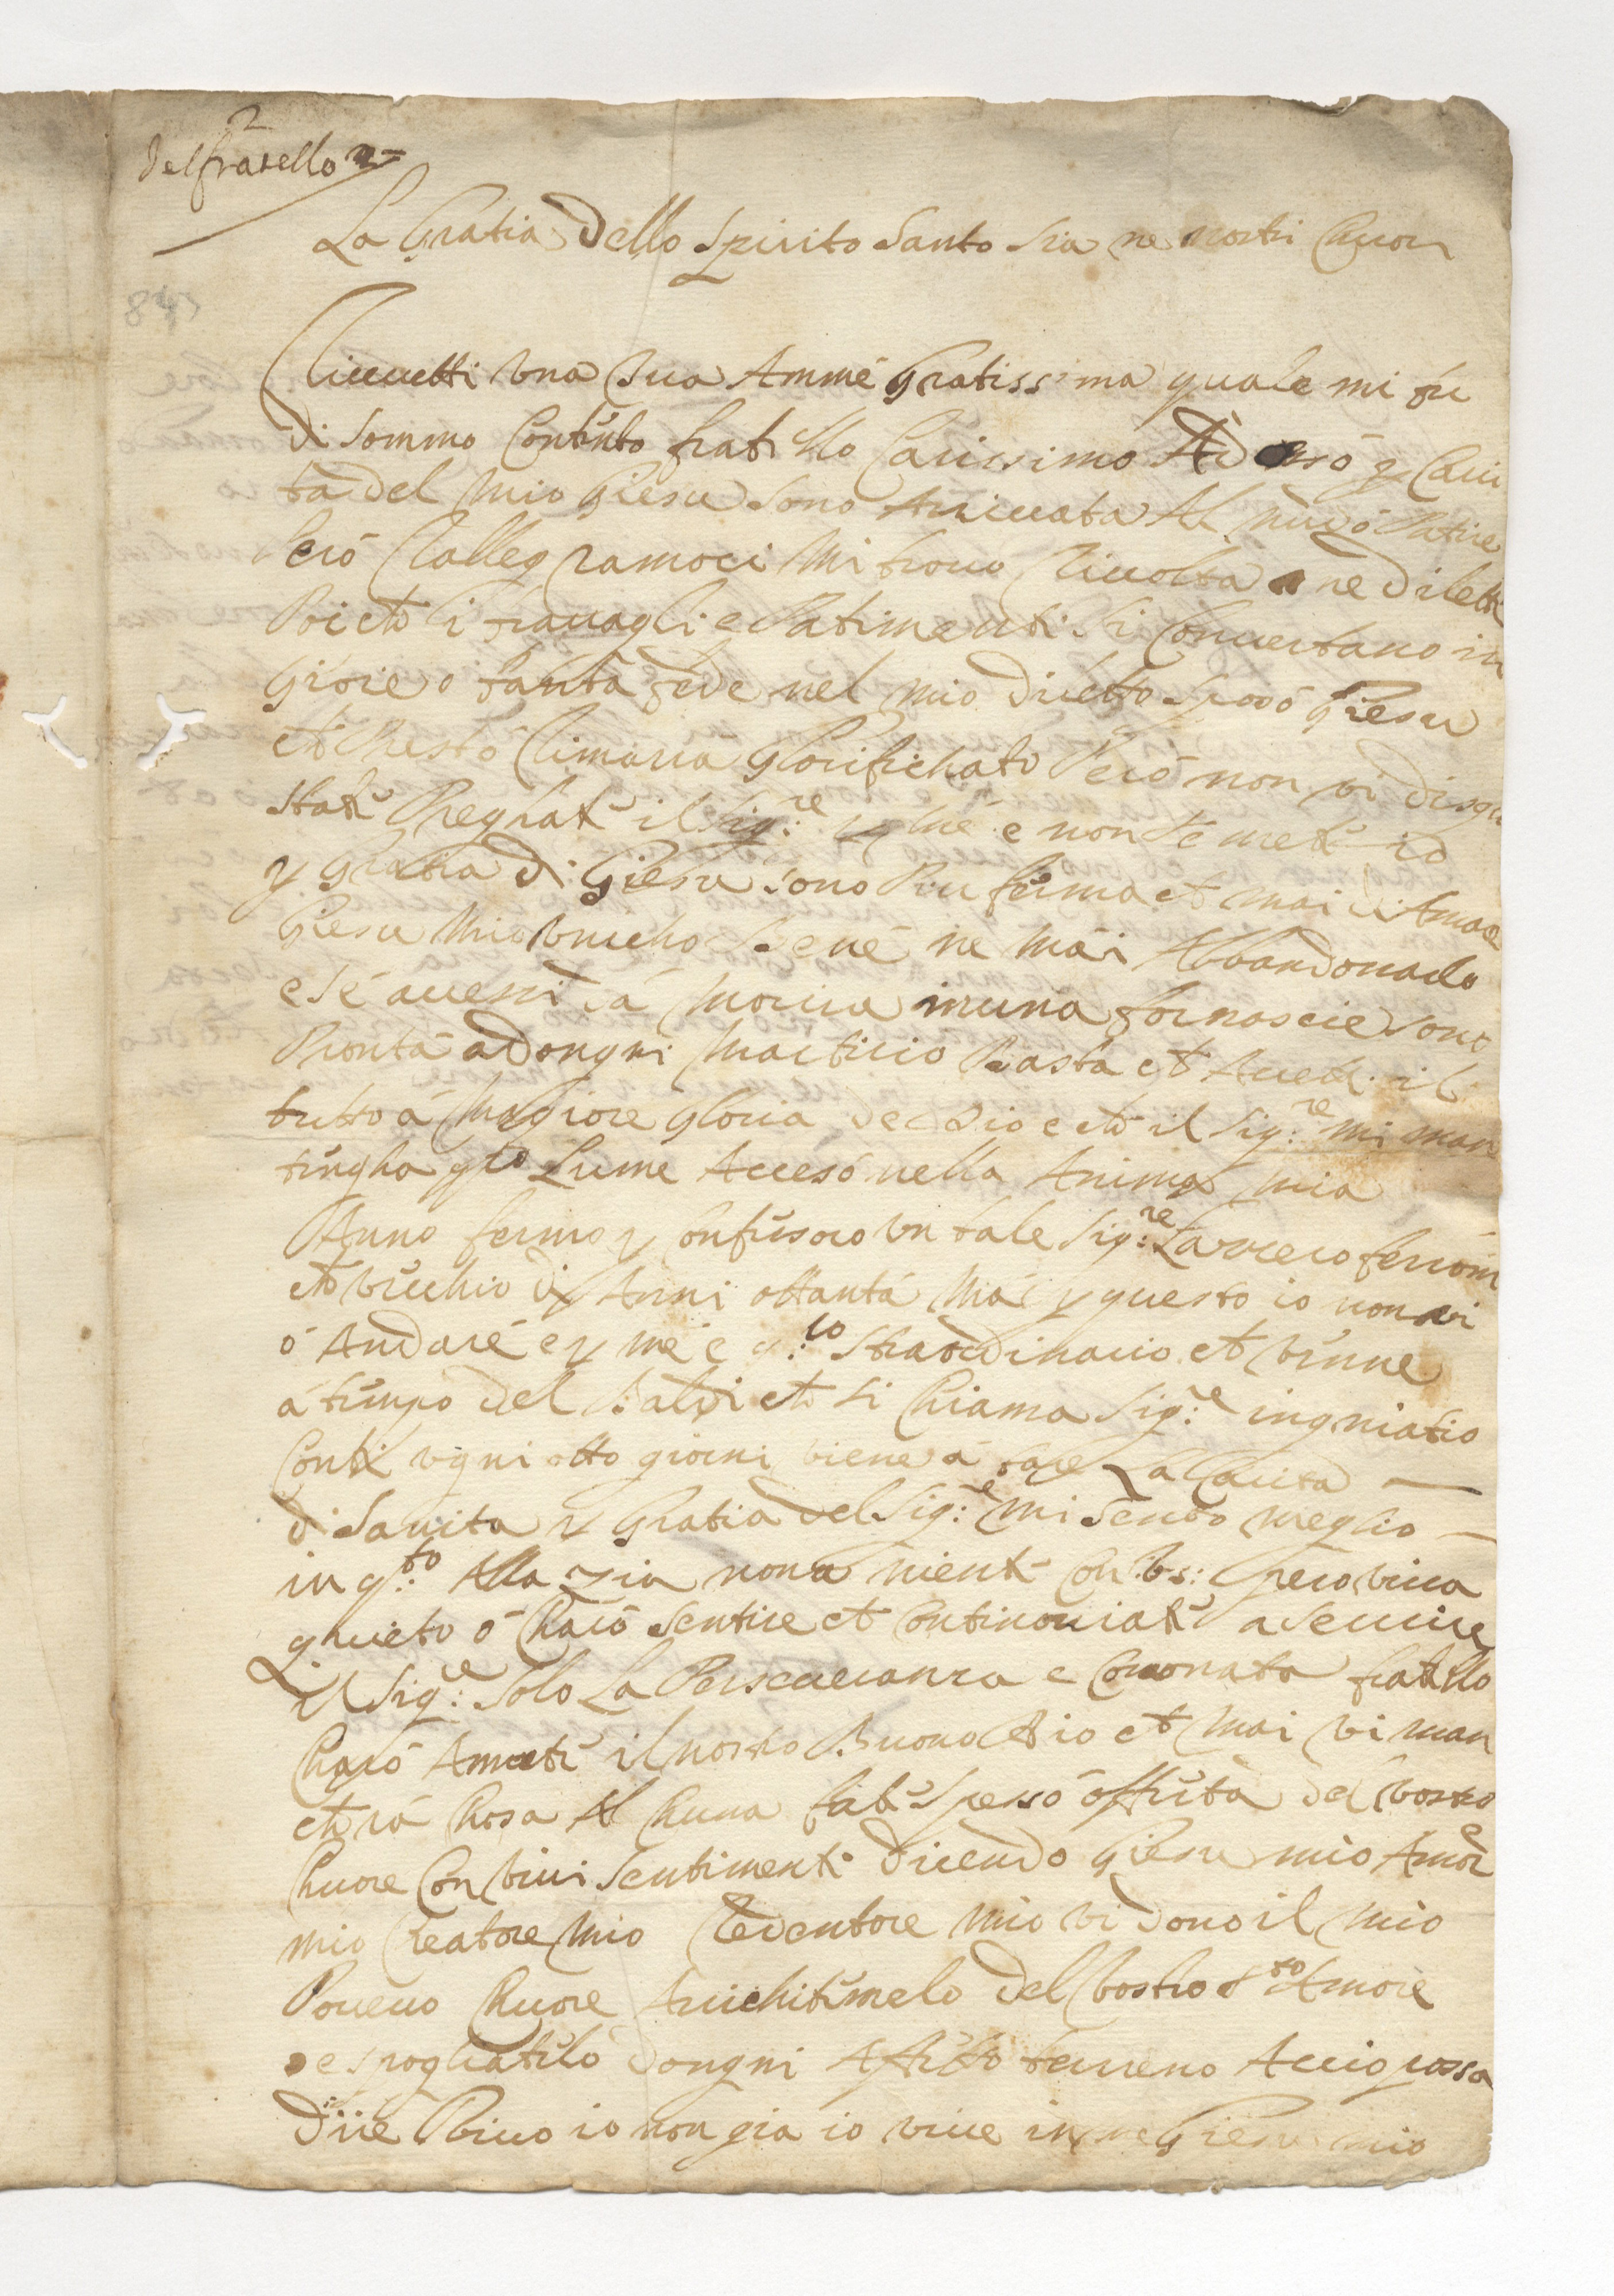 2
del fratello
La Gratia dello Spirito Santo sia ne nostri Chuori
84
Riceuetti una sua Ammé Gratissima quale mi fu
di sommo Contento fratello Carissimo Adesó p Cari
ta del mio Giesu sono Arriuata Al patire
Peró Rallegramoci mi trouo riuolta ne diletti
Poi che li trauagli e Patimenti si Conuertano in
Gioie o tanta fede nel mio diletto Sposó Giesu
che Presto rimarra Glorifichato Peró non vi disgu
state Preghate il Sig:re p mé e non temete io
p Gratia di Giesu sono Piu ferma che mai di Amare
Giesu mio vnicho Bené ne mai Abbandonarlo
e sé auessi dá morire inuna fornascie sono
Pronta adongni Martirio Basta che Auete il
tutto á Magiore Gloria de Dio e che il Sig:re mi man
tengha qto Lume Accesó nella Anima mia
Anno fermo p Confusoro vn tale Sig:re
che vecchio di Anni ottanta Má p questo io non vi
ó Andaré e p mé é straordinario che venne
á tempo del Baldi che si Chiama Sig:re ingniatio
Conti ogni otto giorni viene á fare La Carita
di Sanita p Gratia del Sig:e mi sento meglio
in q:to Alla zia nona niente spero viua
quieto ó Charo sentire che Continouiate a seruire
il Sig:re solo La Perseueranza e Coronata fratello
Charo Amate il nostro Buono Dio che mai vi man
chera Chosa Al Chuna fate Spesso offerta del vostro
Chuore Con viui sentimenti dicendo Giesu mio Amore
mio Creatore mio Redentore mio vi dono il mio
Pouero Chuore Arrichitemelo del vostro Sto Amore
e spogliateló dongni Affetto terreno Accio possa
dire Viuo io non gia io viue in me Giesu mio